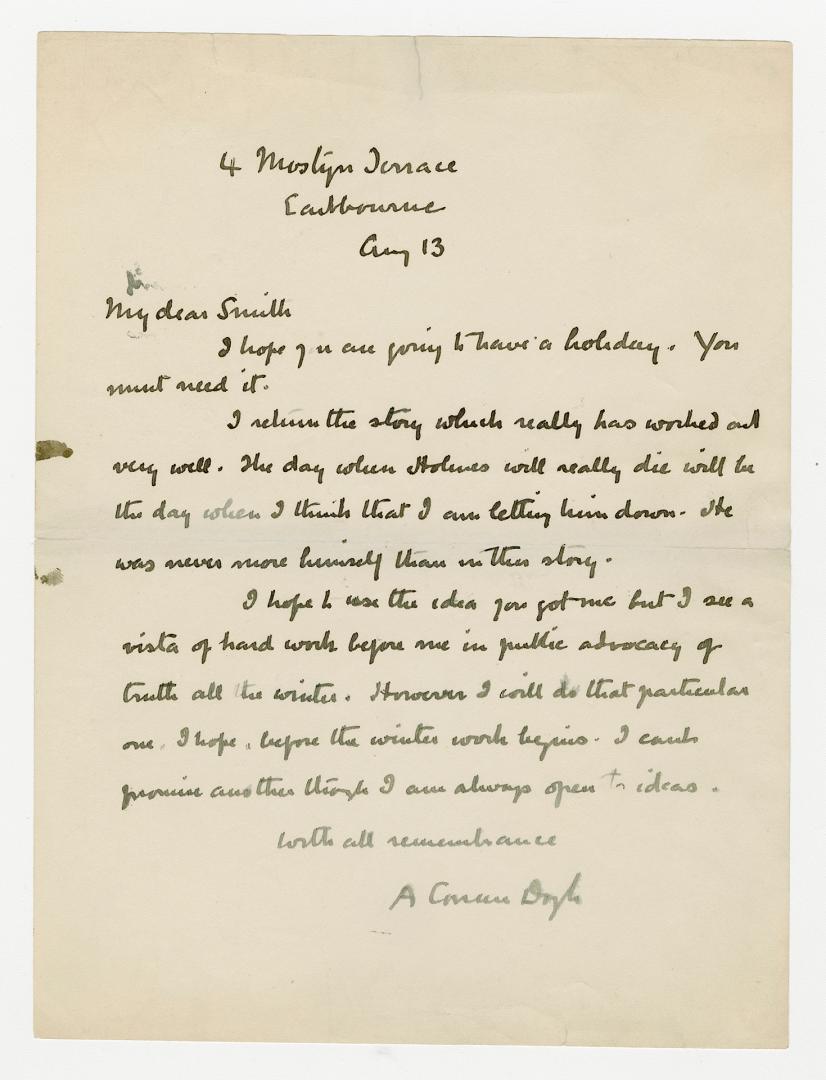 4 Mostyn Terrace
Eastbourne
Aug 13
My dear Smith
I hope you are going to have a holiday. You
must need it.
I return the story which really has worked out
very well. The day when Holmes will really die will be
the day when I think that I am letting him down. He
was never more himself than in this story.
I hope to use the idea you got me but I see a
vista of hard work before me in public advocacy of
truth all the winter. However I will do that particular
one, I hope, before the winter work begins. I can't
promise another though I am always open to ideas.
With all remembrance
A Conan Doyle